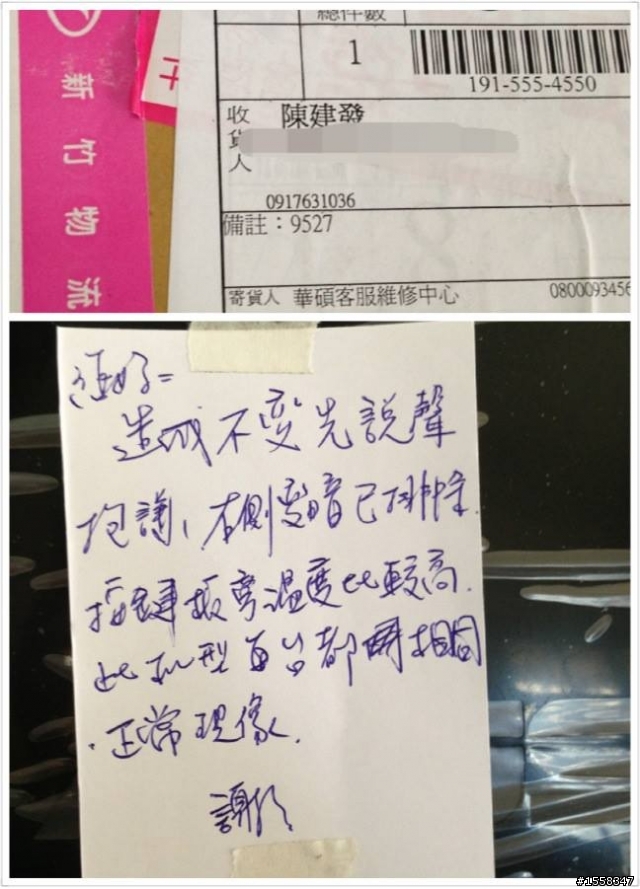 新竹物流
件
總件數
1
191-555-4550
收貨人
陳建發
0917631036
備註：9527
寄貨人 華碩客服維修中心 0800093456
您好=
造成不變先說聲
抱謙、右側變暗已排除.
按鍵板旁溫度比較高.
此机型百台都相同
.正常現像.
謝謝
#1558347